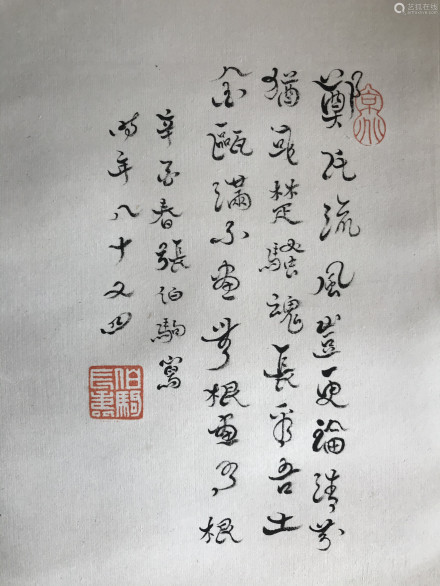 艺狐在线
京兆
鄭氏流風豈更論清芬
猶是楚騷魂長吾土
金甌滿不畫無根畫有根
辛酉春張伯駒寫
時年八十又四
伯駒長壽